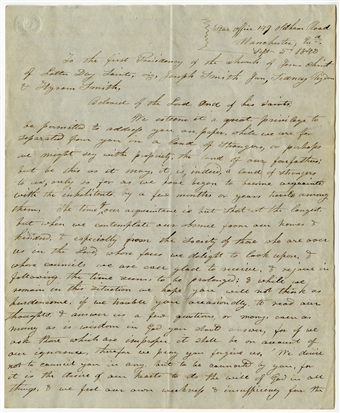 Star office 149 Oldham Road
Manchester, En.
Sept. 5th 1840
To the first Presidency of the Church of Jesus Christ
of Latter Day Saints, Joseph Smith Jun, Sidney Rigdon
& Hyrum Smith,
Beloved of the Lord and of his Saints,
We esteem it a great privilege to
be permitted to address you on paper while we are far
separated from you in a land of strangers, or perhaps
we might say with propriety, the land of our forefathers;
but be this as it may, it is, indeed, a land of strangers
to us, only so far as we have begun to receive acquaintance
with the inhabitants by a few months or years travels among
them. The time of our acquaintance is but short at the longest,
but when we contemplate our absence from our homes &
kindred, & especially from the society of those who are over
us in the Lord, whose faces we delight to look upon, &
whose council we are ever glad to receive, & rejoice in
following the time seems to be prolonged; & while we
remain in this situation we hope you will not think us
burdensome, if we trouble you occasionally to read our
thoughts, & answer us a few questions, or many, even as
many as is wisdom in God you should answer, for if we
ask those which are improper it shall be on account of
our ignorance, therefore we pray you forgive us. We desire
not to council you in any, but to be councilled by you, for
it is the desire of our hearts to do the will of God in all
things, & we feel our own weakness & insufficiency for the